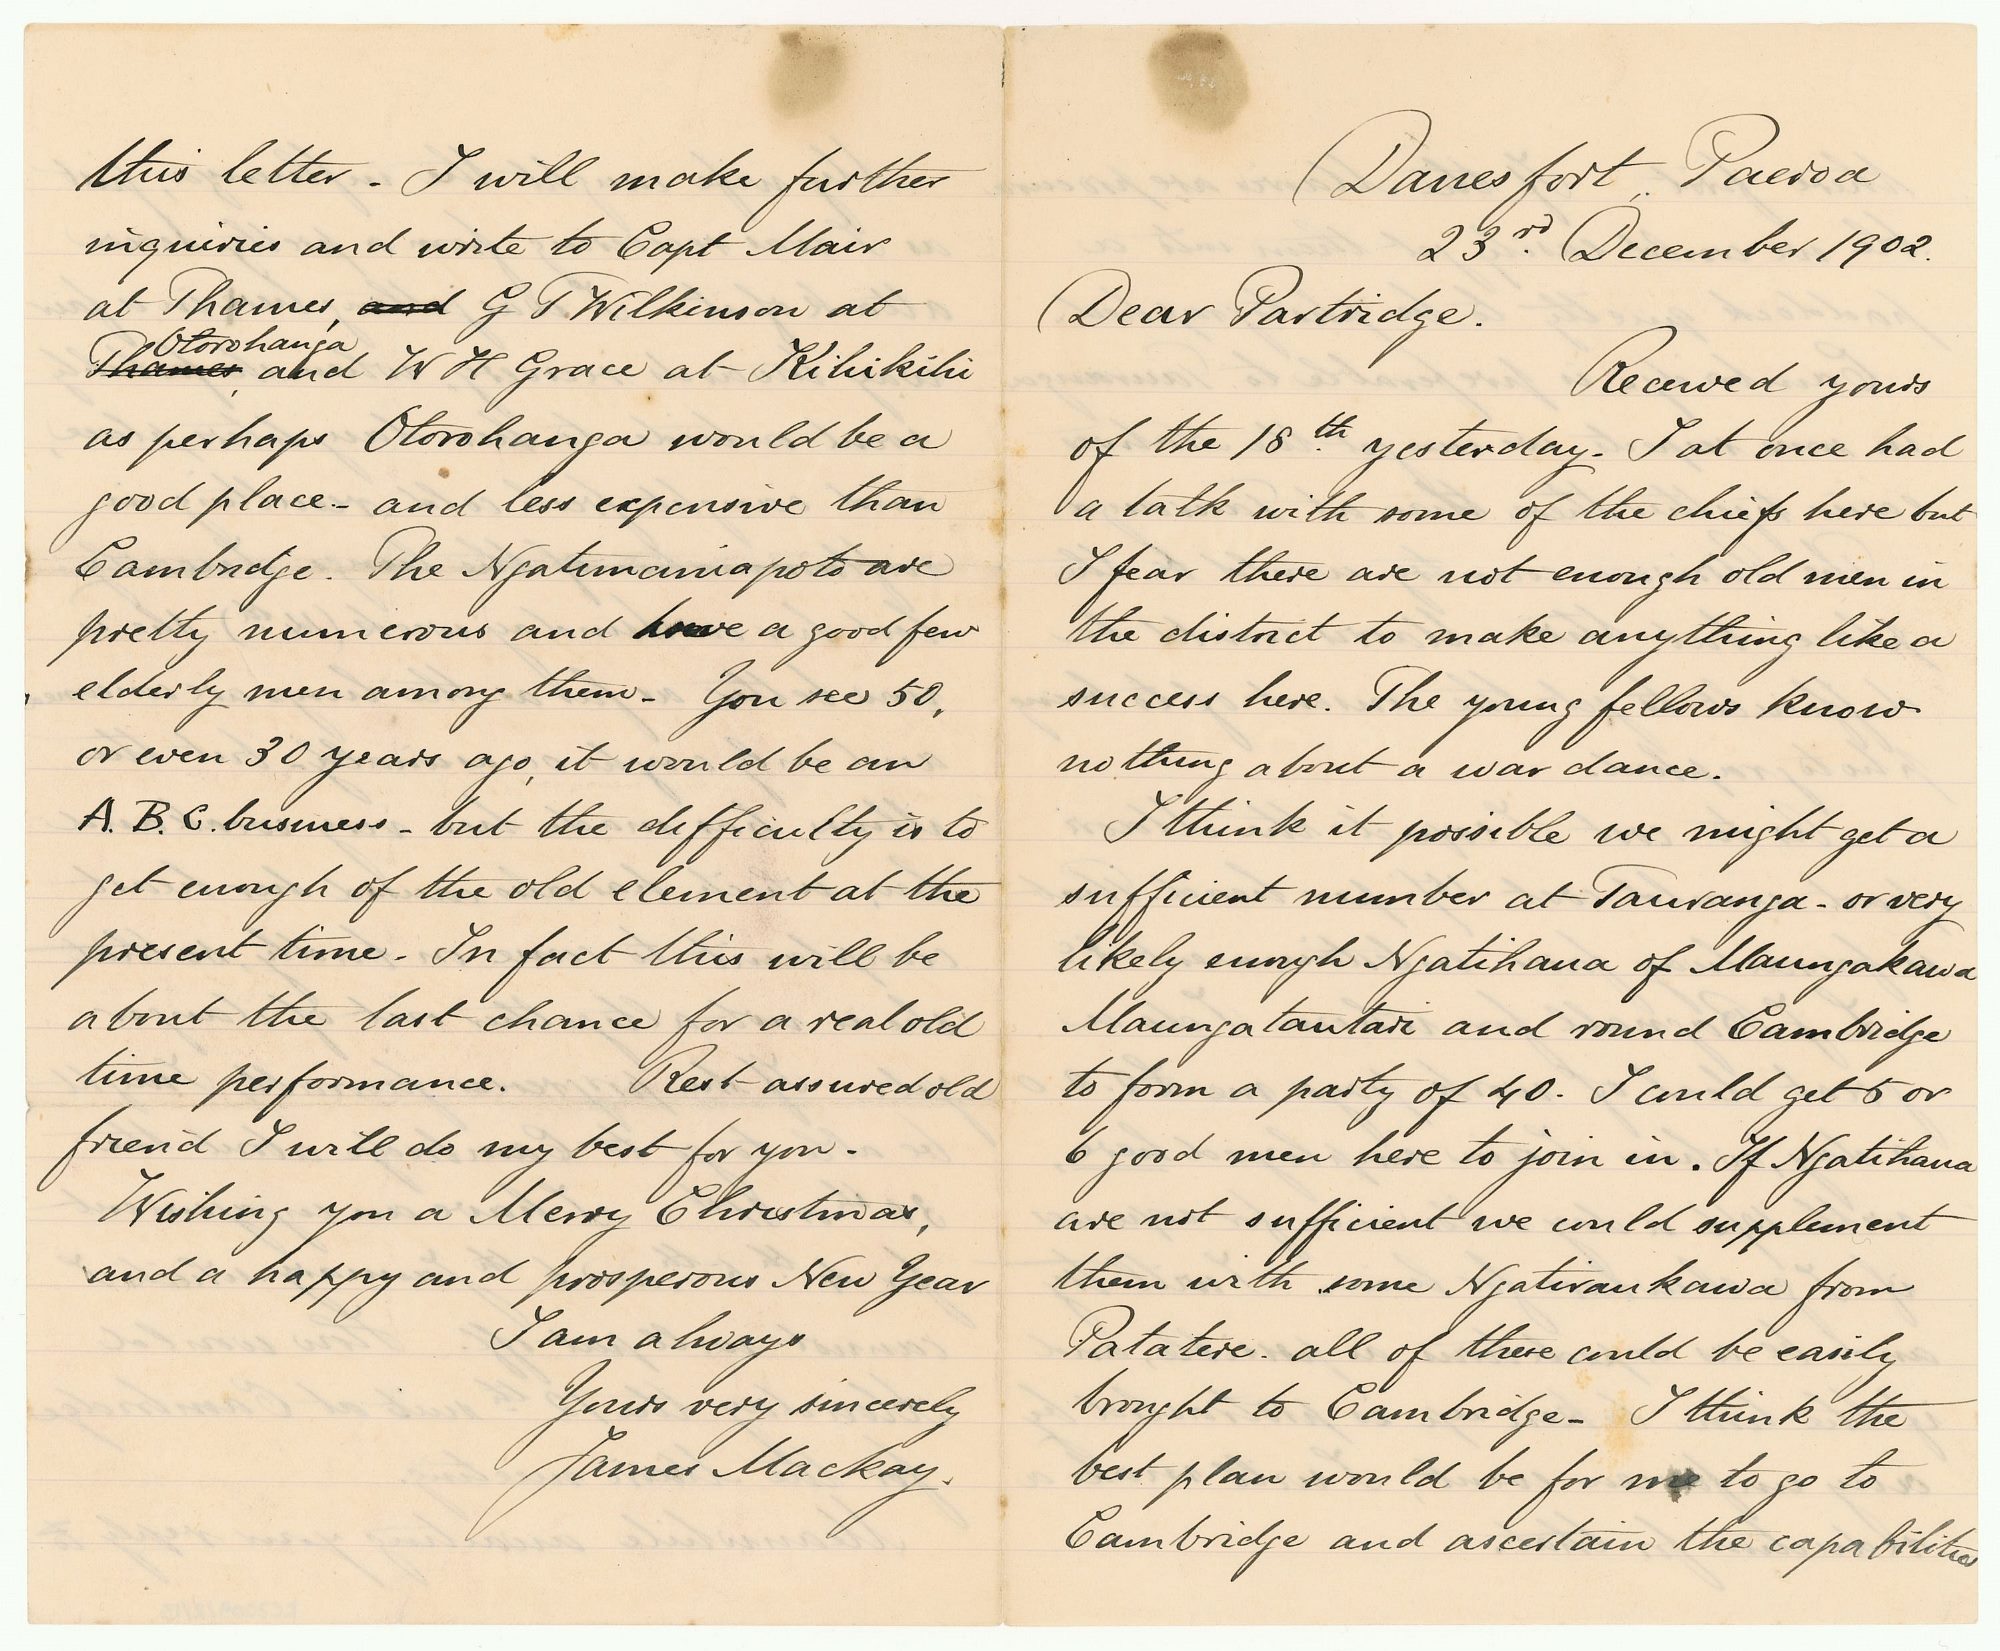 Danesfort, Paeroa
23rd. December 1902.
Dear Partridge.
Received yours
of the 18th. yesterday - I at once had
a talk with some of the chiefs here but
I fear there are not enough old men in
the district to make anything like a
success here. The young fellows know
nothing about a war dance.
I think it possible we might get a
sufficient number at Tauranga - or very
likely enough Ngatihaua of Maungakawa
Maungatautari and round Cambridge
to form a party of 40. I could get 5 or
6 good men here to join in. If Ngatihaua
are not sufficient we could supplement
them with some Ngatiraukawa from
Patatere. all of these could be easily
brought to Cambridge - I think the
best plan would be for me to go to
Cambridge and ascertain the capabilities
this letter - I will make further
inquiries and write to Capt Mair
at Thames, and G T Wilkinson at
Otorohanga
Thames, and W H Grace at Kihikihi
as perhaps Otorohanga would be a
good place - and less expensive than
Cambridge. The Ngatimaniapoto are
pretty numerous and have a good few
elderly men among them - You see 50,
or even 30 years ago, it would be an
A. B. C. business - but the difficulty is to
get enough of the old element at the
present time - In fact this will be
about the last chance for a real old
time performance. Rest assured old
friend I will do my best for you -
Wishing you a Merry Christmas,
and a happy and prosperous New Year
I am always
Yours very sincerely
James Mackay.